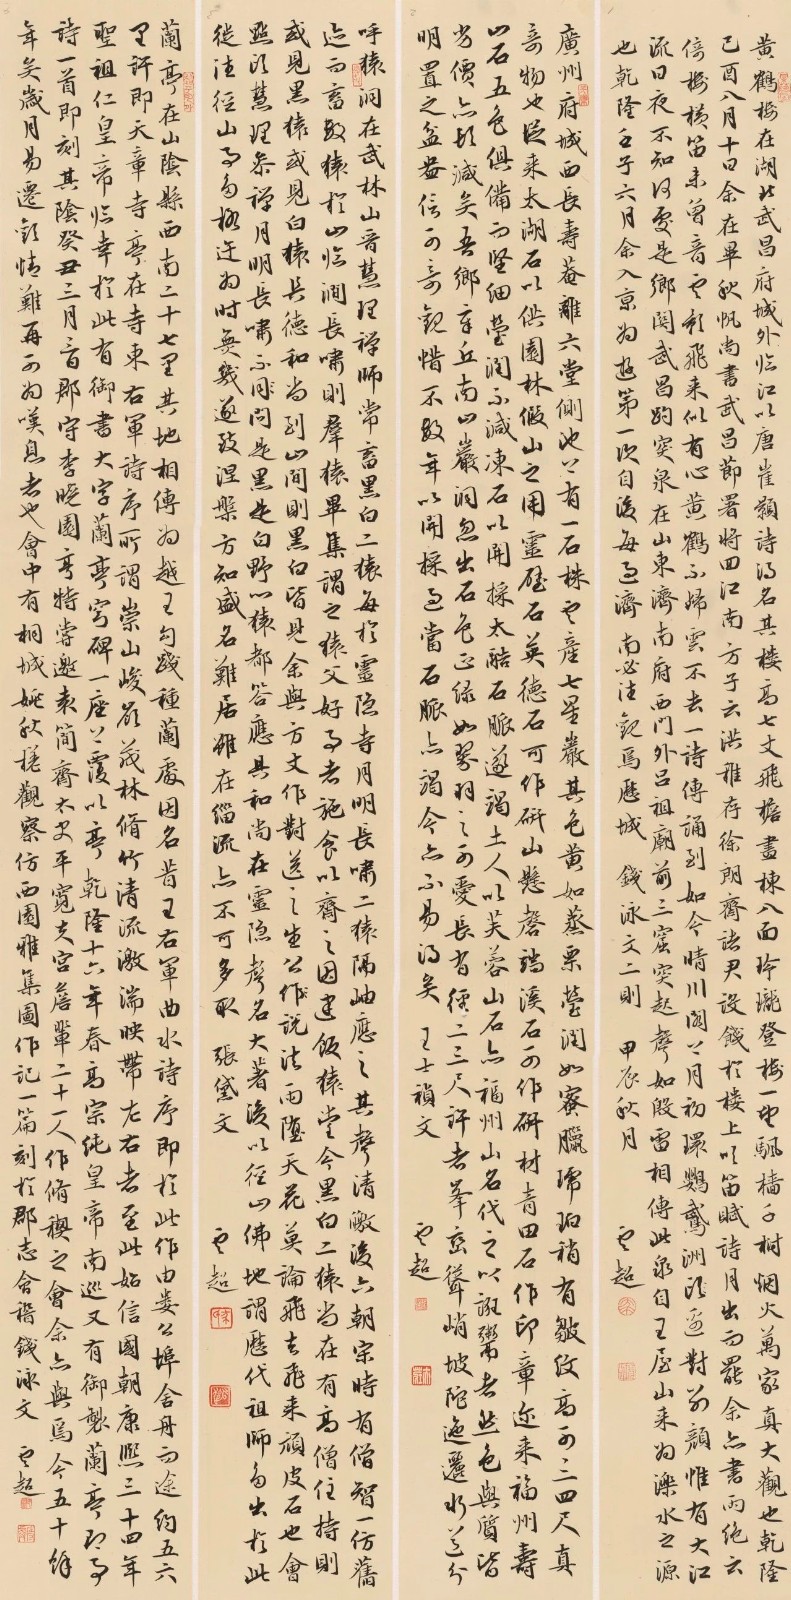 黄鶴樓在湖北武昌府城外臨江以唐崔顥詩得名其楼高七丈飛檐畫棟八面玲瓏登楼一望颿檣千樹烟火萬家真大觀也乾隆
己酉八月十日余在畢秋帆尚書武昌節署将回江南方子云洪稚存徐朗齋諸君設餞於楼上吹笛賦詩月出而罷余亦書兩絶云
倚樓横笛未曾音雲影飛来似有心黄鶴不歸雲不去一詩傳誦到如今晴川閣上月初環鸚鵡洲深正對顔惟有大江
流日夜不知何處是鄉関武昌趵突泉在山東濟南府西門外吕祖廟前三窟突起聲如殷雷相傳此泉自王屋山来為濼水之源
也乾隆壬子六月余入京为遊第一次自後每過濟南必往觀焉歷城 錢泳文二則 甲辰秋月 雲超
廣州府城西長壽菴離六堂側池上有一石株云産七星巖其色黄如蒸栗瑩潤如蜜臘琥珀稍有皺紋高可三四尺真
奇物也從来太湖石以供園林假山之用靈壁石英德石可作研山懸磬端溪石可作研材青田石作印章近来福州壽
山石五色俱備而堅細瑩潤不減凍石以開採太酷石脈遂竭土人以芙蓉山石亦福州山名代之以誑鬻者然色與質皆
劣價亦頓減矣吾鄉章丘南山巖洞忽出石色正绿如翠羽之可愛長者徑二三尺許者峯巒聳峭坡陀迤邐水道分
明置之盆盎信可奇觀惜不数年以開採過當石脈亦竭今亦不易得矣 王士禎文 雲超
呼猿洞在武林山晋慧理禅師常畜黑白二猿每於靈隐寺月明長嘯二猿隔岫應之其聲清激後六朝宋時有僧智一仿舊
迹而畜数猿於山臨澗長嘯則羣猿畢集謂之猿父好事者施食以齋之因建飯猿堂今黑白二猿尚在有高僧住持則
或見黑猿或見白猿具德和尚到山間則黑白皆見余與方文作對送之生公作說法雨墮天花莫論飛去飛来頑皮石也會
點頭慧理参禅月明長嘯不問是黑是白野心猿都答應具和尚在靈隐聲名大著後以徑山佛地謂歷代祖師多出於此
徙往徑山事多格迕为時無幾遂致涅槃方知盛名難居雖在緇流亦不可多取 張岱文 雲超
蘭亭在山陰縣西南二十七里其地相傳为越王勾踐種蘭處因名昔王右軍曲水詩序即於此作由婁公埠舍舟而途約五六
里許即天章寺亭在寺東右軍詩序所謂崇山峻嶺茂林脩竹清流激湍映帶左右者至此始信國朝康熙三十四年
聖祖仁皇帝臨幸於此有御書大字蘭亭穹碑一座上覆以亭乾隆十六年春高宗純皇帝南巡又有御製蘭亭即事
詩一首即刻其陰癸丑三月吾郡守李曉園亨特嘗邀袁简齋太史平寬夫宫詹輩二十一人作脩禊之會余亦與焉今五十餘
年矣歲月易遷歡情難再可为嘆息者也會中有桐城姚秋槎觀察仿西園雅集圖作記一篇刻於郡志會稽錢泳文 雲超